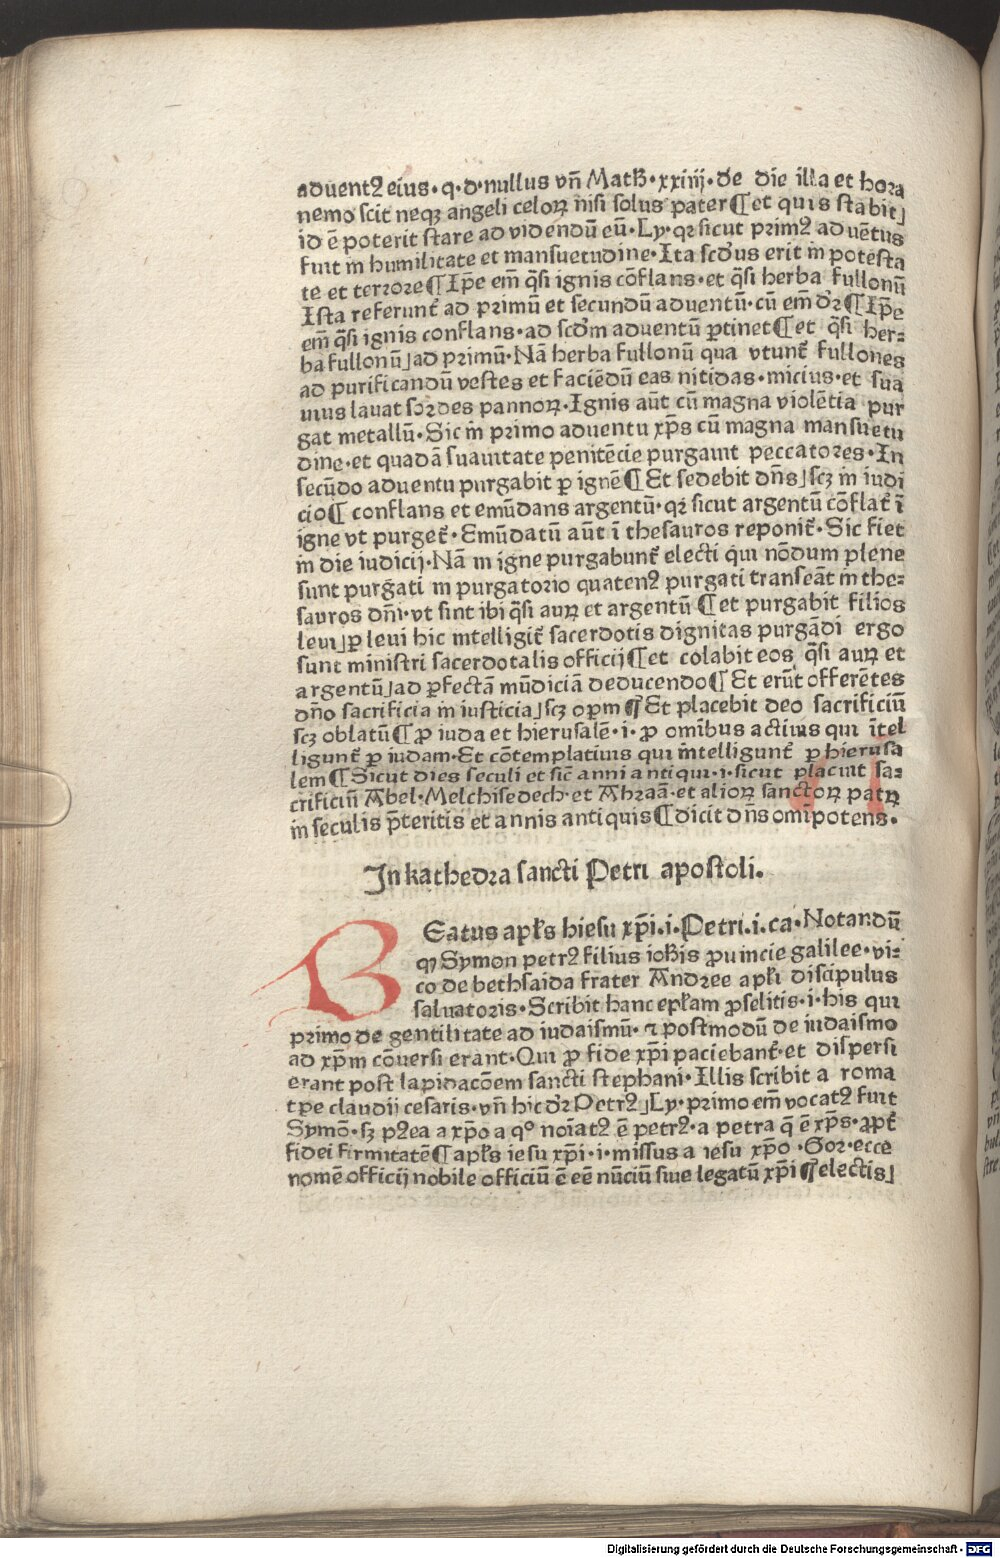 aduentꝰ eius·q·d·nullus vn̄ Matħ·xxiiij·de die illa et hora
nemo scit neqꝫ angeli celoꝝ nisi solus pater ¶ et quis stabit⌋
id ē poterit stare ad videndū eū·Ly·qꝛ sicut primꝰ aduētus
fuit in humilitate et mansuetudine·Ita scd̓us erit in potesta
te et terrore ¶ Ip̄e em̄ q̄si ignis cōflans·et q̄si herba fullonū
Ista referunt᷑ ad primū et secundū aduentū·cū em̄ dꝛ̄ ¶ Ip̄e
em̄ q̄si ignis conflans·ad scd̓m aduentū ꝑtinet ¶ et q̄si her⸗
ba fullonū⌋ad primū·Nā herba fullonū qua vtunt᷑ fullones
ad purificandū vestes et faciēdū eas nitidas·micius·et sua
uius lauat sordes pannoꝝ·Ignis aūt cū magna violētia pur
gat metallū·Sic in primo aduentu xp̄s cū magna mansuetu
dine·et quadā suauitate penitēcie purgauit peccatores·In
secūdo aduentu purgabit ꝑ ignē ¶ Et sedebit dn̄s⌋scꝫ in iudi
cio ¶ conflans et emūdans argentū·qꝛ sicut argentū cōflat᷑ ī
igne vt purget᷑·Emūdatū aūt ī thesauros reponit᷑·Sic fiet
in die iudicij·Nā in igne purgabunt᷑ electi qui nōdum plene
sunt purgati in purgatorio quatenꝰ purgati transeāt in the⸗
sauros dn̄i·vt sint ibi q̄si auꝝ et argentū ¶ et purgabit filios
leui⌋ꝑ leui hic intelligit᷑ sacerdotis dignitas purgādi ergo
sunt ministri sacerdotalis officij ¶ et colabit eos q̄si auꝝ et
argentū⌋ad ꝑfectā mūdiciā deducendo ¶ Et erūt offerētes
dn̄o sacrificia in iusticia⌋scꝫ oꝑm ¶ Et placebit deo sacrificiū
scꝫ oblatū ¶ ꝓ iuda et hierusalē·i·ꝓ omībus actiuis qui ītel
ligunt᷑ ꝑ iudam·Et cōtemplatiuis qui intelligunt᷑ ꝑ hierusa
lem ¶ Sicut dies seculi et sic̄ anni antiqui·i·sicut placuit sa⸗
crificiū Abel·Melchisedech·et Abraā·et alioꝝ sanctoꝝ patꝝ
in seculis p̄teritis et annis antiquis ¶ dicit dn̄s omīpotens·
In kathedra sancti Petri apostoli.
BEatus apl̄s hiesu xp̄i.i·Petri.i.ca·Notandū
qꝫ Symon petrꝰ filius ioħis ꝓuincie galilee·vi⸗
co de bethsaida frater Andree apl̄i discipulus
saluatoris·Scribit hanc epl̄am ꝓselitis·i·his qui
primo de gentilitate ad iudaismū·⁊ postmodū de iudaismo
ad xp̄m cōuersi erant·Qui ꝓ fide xp̄i paciebant᷑·et dispersi
erant post lapidacōem sancti stephani·Illis scribit a roma
tp̄e claudij cesaris·vn̄ hic dꝛ̄ Petrꝰ⌋Ly·primo em̄ vocatꝰ fuit
Symō·sꝫ pꝰea a xp̄o a q° noīatꝰ ē petrꝰ·a petra q̄ ē xp̄s·ꝓpt᷑
fidei firmitatē ¶ apl̄s iesu xp̄i·i·missus a iesu xp̄o·Gor·ecce
nomē officij nobile officiū ē eē nūciū siue legatū xp̄i ¶ electis⌋
Digitalisierung gefördert durch die Deutsche Forschungsgemeinschaft - DFG